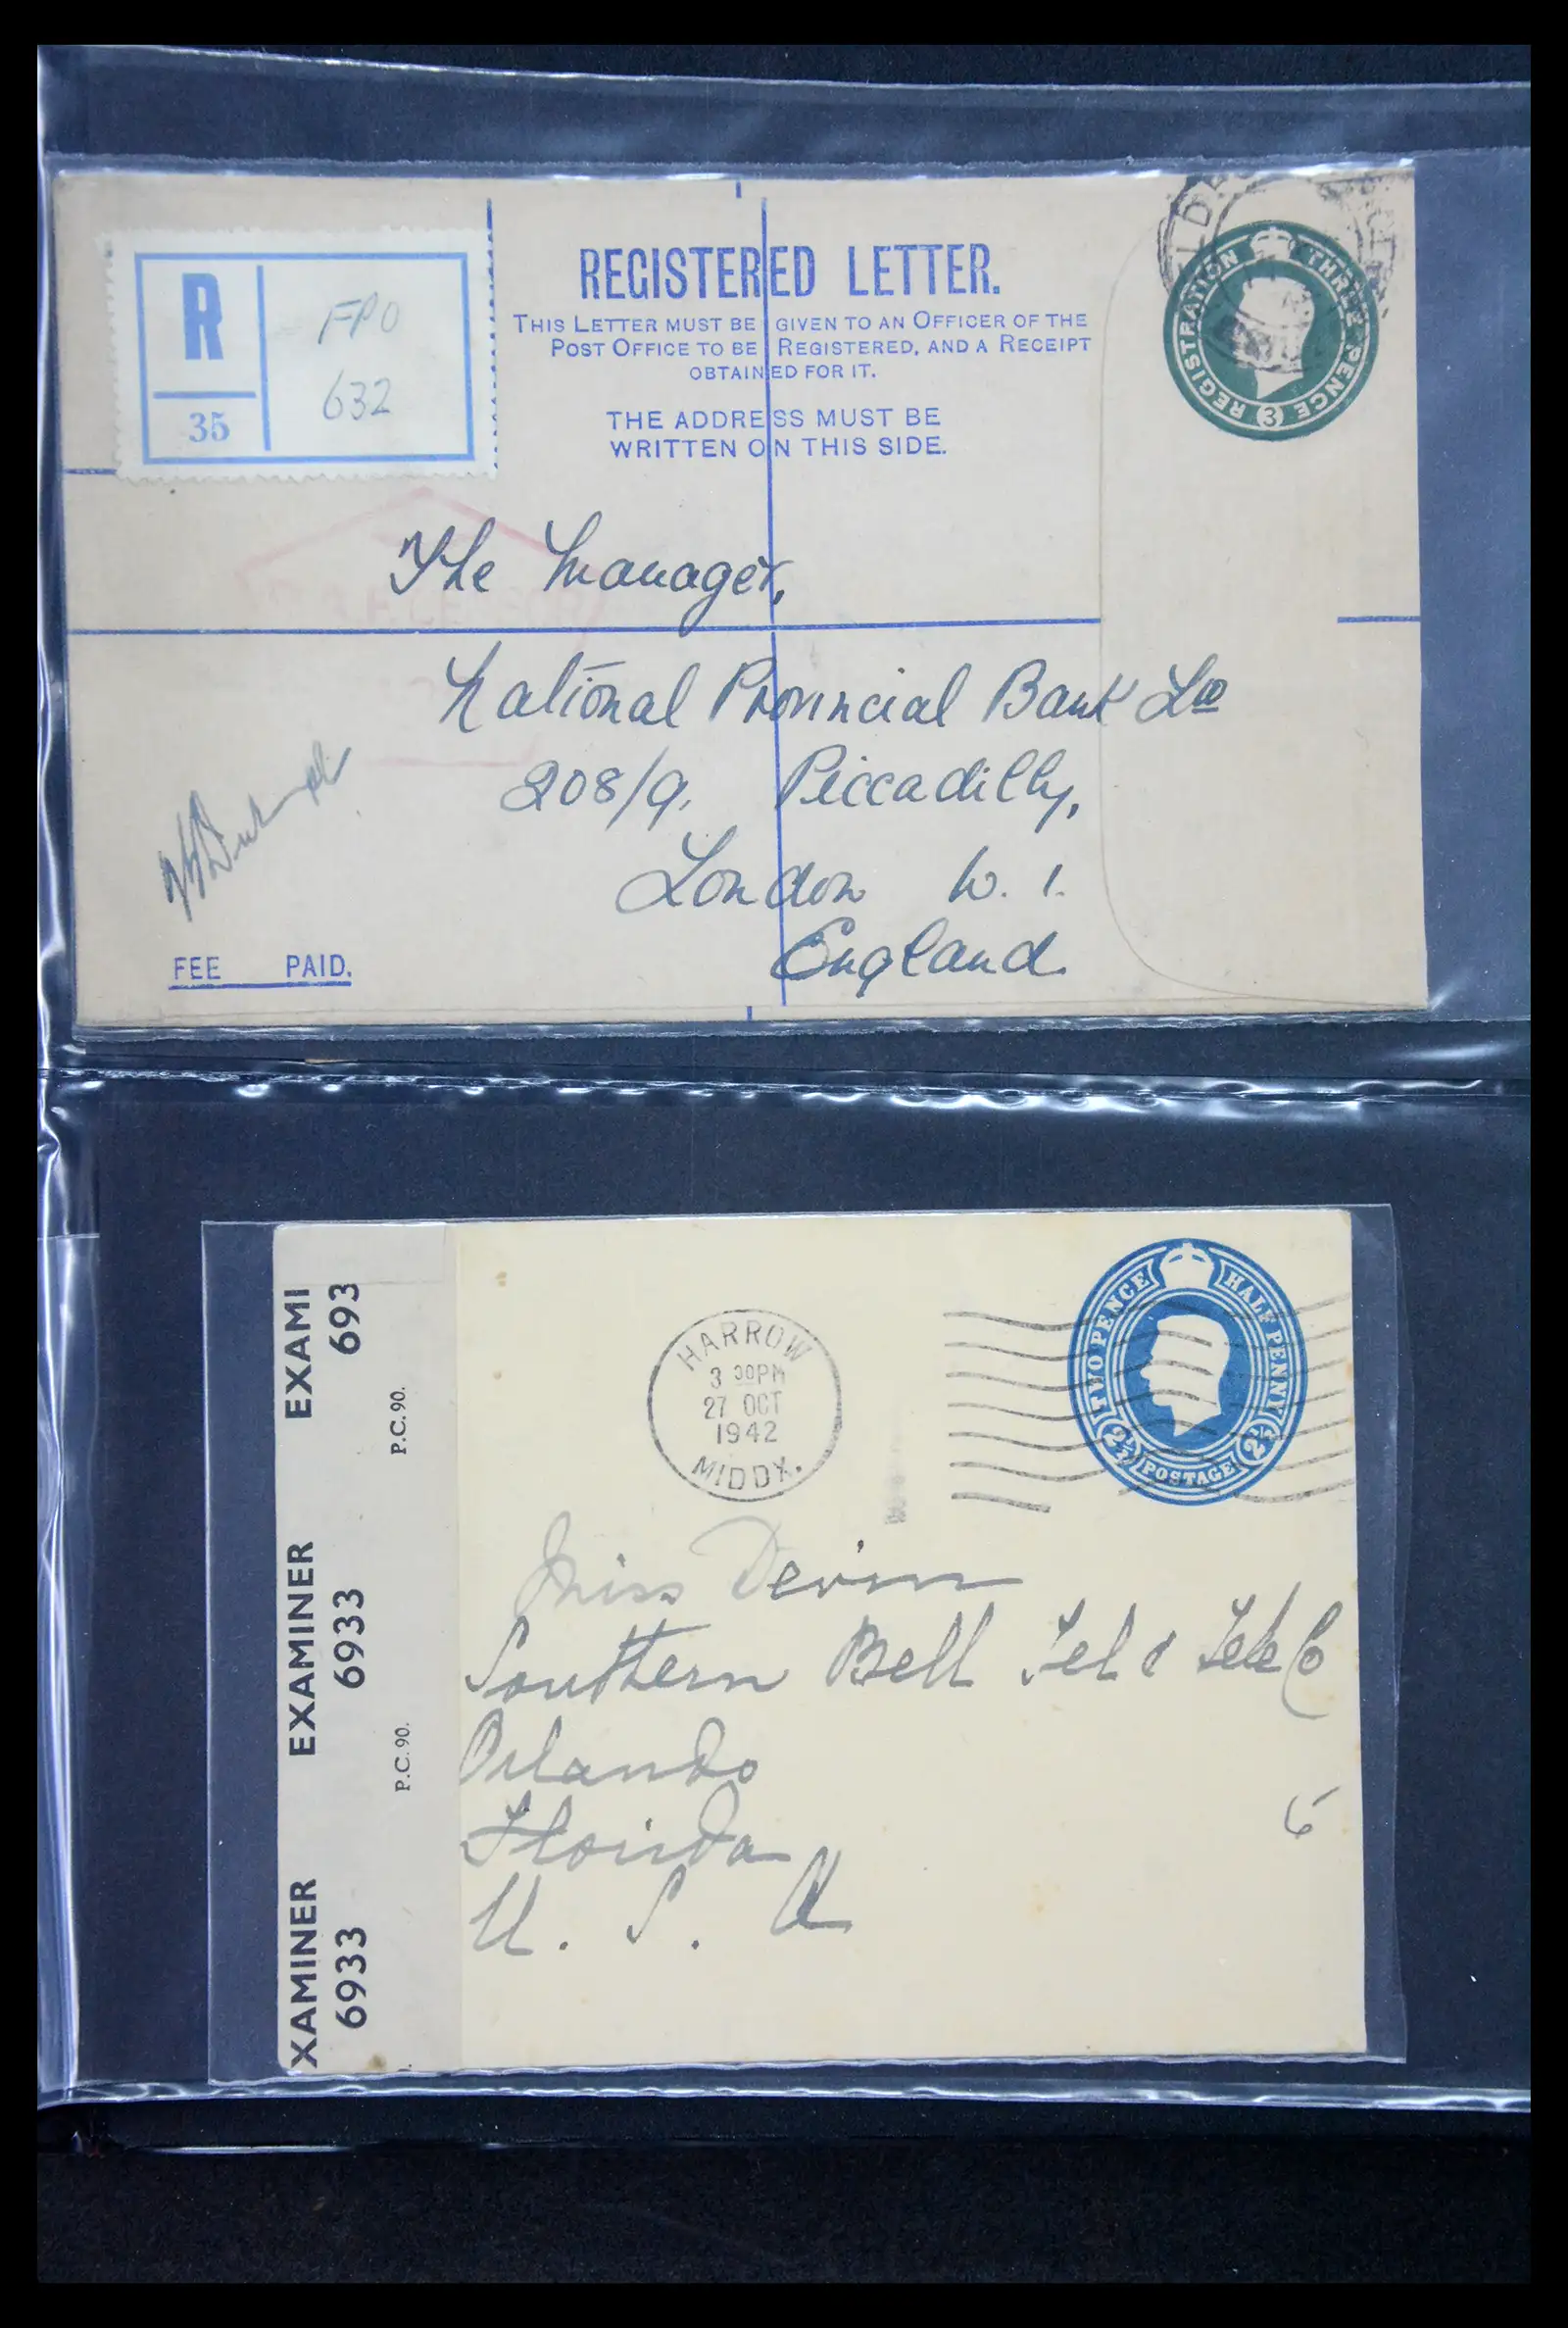 R
35
FPO
632
REGISTERED LETTER.
THIS LETTER MUST BE GIVEN TO AN OFFICER OF THE
POST OFFICE TO BE REGISTERED, AND A RECEIPT
OBTAINED FOR IT.
THE ADDRESS MUST BE
WRITTEN ON THIS SIDE.
REGISTRATION THREE PENCE
3
The Manager,
National Provincial Bank Ltd
208/9, Piccadilly,
London W. 1.
England.
FEE PAID.
EXAMI
693
P.C. 90.
EXAMINER
6933
P.C. 90.
XAMINER
6933
HARROW
3 30PM
27 OCT
1942
MIDDX.
TWO PENCE HALF PENNY
2½ POSTAGE 2½
Miss Devin
Southern Bell Tel & Tele Co
Orlando
Florida
U. S. A